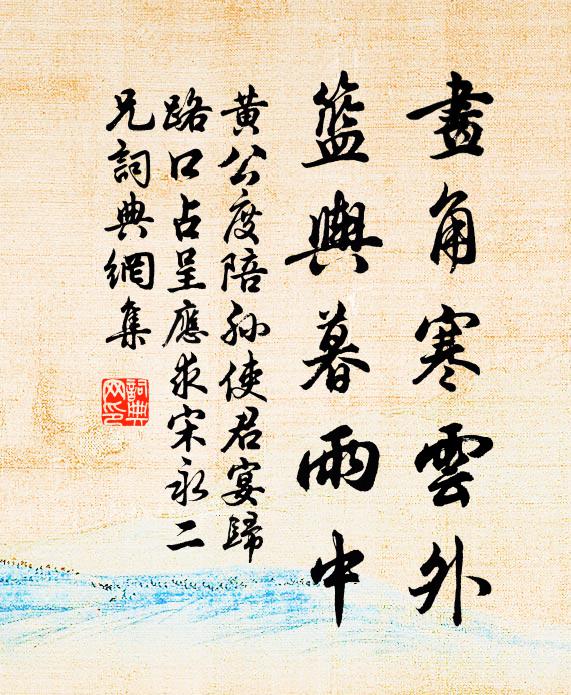 畫角寒雲外
籃輿暮雨中
黄公度陪孙使君宴歸
路口占呈應求宋永二
兄詞典網集
詞典網印